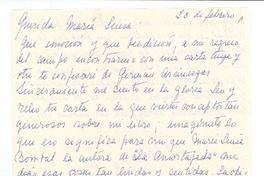 23 de febrero
Querida María Luisa
Que emoción y que bendición, a mi regreso
del campo encontrarme con una carta tuya y
otra te confesaré de Germán Arciniegas
Sinceramente me siento en la gloria leo y
releo tu carta en la que viertes conceptos tan
generosos sobre mi libro; imagínate lo
que no significa para mi que María Luisa
Bombal la autora de "La Amortajada" me
diga esas cosas tan lindas y sentidas.